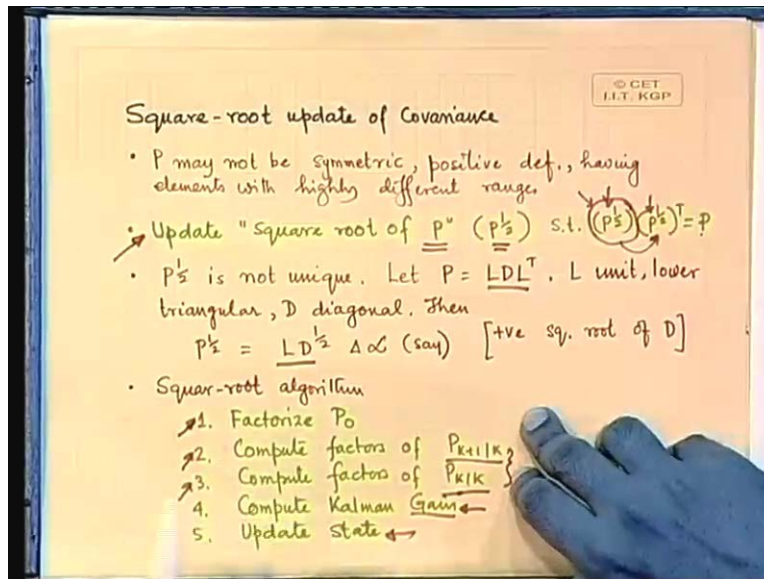 © CET
I.I.T. KGP
Square-root update of Covariance
• P may not be symmetric, positive def., having
elements with highly different ranges
• Update "Square root of P" (P^½) s.t. (P^½)(P^½)^T = P
• P^½ is not unique. Let P = LDL^T. L unit, lower
triangular, D diagonal. Then
P^½ = LD^½ Δ ℒ (say) [+ve sq. root of D]
• Squar-root algorithm
1. Factorize P₀
2. Compute factors of P_{K+1|K}
3. Compute factors of P_{K|K}
4. Compute Kalman Gain ←
5. Update State ←